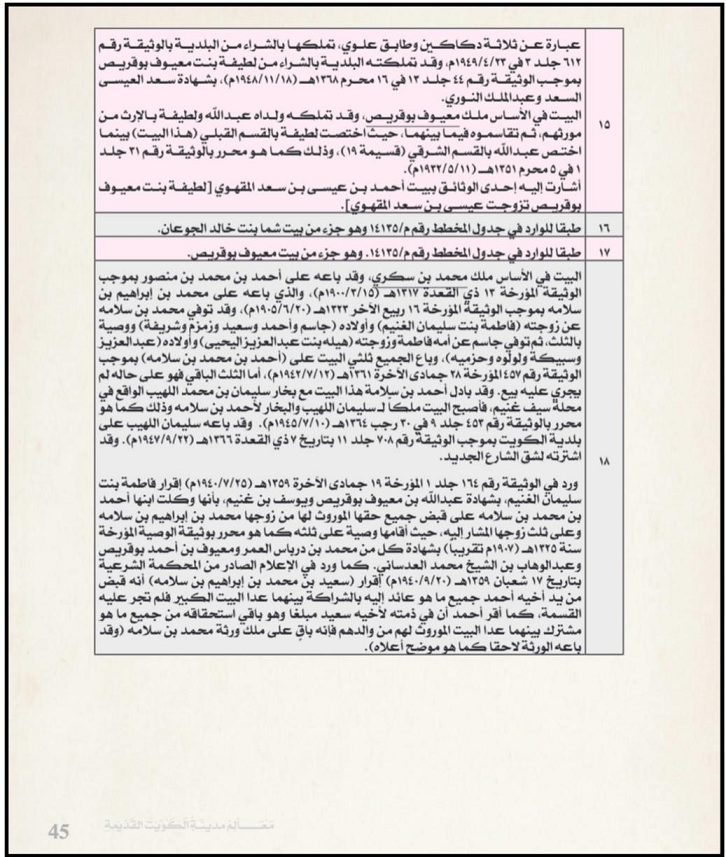 عبارة عن ثلاثة دكاكين وطابق علوي، تملكها بالشراء من البلدية بالوثيقة رقم
٦١٢ جلد ٣ في ١٩٤٩/٤/٢٣م، وقد تملكته البلدية بالشراء من لطيفة بنت معيوف بوقريص
بموجب الوثيقة رقم ٤٤ جلد ١٣ في ١٦ محرم ١٣٦٨هـ (١٩٤٨/١١/١٨م)، بشهادة سعد العيسى
السعد وعبدالملك النوري.
١٥
البيت في الأساس ملك معيوف بوقريص، وقد تملكه ولداه عبدالله ولطيفة بالإرث من
مورثهم، ثم تقاسموه فيما بينهما، حيث اختصت لطيفة بالقسم القبلي (هذا البيت) بينما
اختص عبدالله بالقسم الشرقي (قسيمة ١٩)، وذلك كما هو محرر بالوثيقة رقم ٣١ جلد
١ في ٥ محرم ١٣٥١هـ (١٩٣٢/٥/١١م).
أشارت إليه إحدى الوثائق ببيت أحمد بن عيسى بن سعد المقهوي [لطيفة بنت معيوف
بوقريص تزوجت عيسى بن سعد المقهوي].
١٦ طبقا للوارد في جدول المخطط رقم م/١٤١٣٥ وهو جزء من بيت شما بنت خالد الجوعان.
١٧ طبقا للوارد في جدول المخطط رقم م/١٤١٣٥، وهو جزء من بيت معيوف بوقريص.
البيت في الأساس ملك محمد بن سكري، وقد باعه على أحمد بن محمد بن منصور بموجب
الوثيقة المؤرخة ١٣ ذي القعدة ١٣١٧هـ (١٩٠٠/٣/١٥م)، والذي باعه على محمد بن إبراهيم بن
سلامه بموجب الوثيقة المؤرخة ١٦ ربيع الأخر ١٣٢٣هـ (١٩٠٥/٦/٢٠م)، وقد توفي محمد بن سلامه
عن زوجته (فاطمة بنت سليمان الغنيم) وأولاده (جاسم وأحمد وسعيد وزمزم وشريفة) ووصية
بالثلث، ثم توفي جاسم عن أمه فاطمة وزوجته (هيله بنت عبدالعزيز اليحيى) وأولاده (عبدالعزيز
وسبيكة ولولوه وحزميه)، وباع الجميع ثلثي البيت على (أحمد بن محمد بن سلامه) بموجب
الوثيقة رقم ٤٥٧ المؤرخة ٢٨ جمادى الأخرة ١٣٦١هـ (١٩٤٢/٧/١٢م)، أما الثلث الباقي فهو على حاله لم
يجري عليه بيع. وقد بادل أحمد بن سلامة هذا البيت مع بخار سليمان بن محمد اللهيب الواقع في
محلة سيف غنيم، فأصبح البيت ملكا لـ سليمان اللهيب والبخار لأحمد بن سلامه وذلك كما هو
محرر بالوثيقة رقم ٤٥٣ جلد ٩ في ٣٠ رجب ١٣٦٤هـ (١٩٤٥/٧/١٠م). وقد باعه سليمان اللهيب على
بلدية الكويت بموجب الوثيقة رقم ٧٠٨ جلد ١١ بتاريخ ٧ ذي القعدة ١٣٦٦هـ (١٩٤٧/٩/٢٢م). وقد
اشترته لشق الشارع الجديد.
١٨
ورد في الوثيقة رقم ١٦٤ جلد ١ المؤرخة ١٩ جمادى الأخرة ١٣٥٩هـ (١٩٤٠/٧/٢٥م) إقرار فاطمة بنت
سليمان الغنيم، بشهادة عبدالله بن معيوف بوقريص ويوسف بن غنيم، بأنها وكلت ابنها أحمد
بن محمد بن سلامه على قبض جميع حقها الموروث لها من زوجها محمد بن إبراهيم بن سلامه
وعلى ثلث زوجها المشار إليه، حيث أقامها وصية على ثلثه كما هو محرر بوثيقة الوصية المؤرخة
سنة ١٣٢٥هـ (١٩٠٧م تقريبا) بشهادة كل من محمد بن درباس العمر ومعيوف بن أحمد بوقريص
وعبدالوهاب بن الشيخ محمد العدساني. كما ورد في الإعلام الصادر من المحكمة الشرعية
بتاريخ ١٧ شعبان ١٣٥٩هـ (١٩٤٠/٩/٢٠م) إقرار (سعيد بن محمد بن إبراهيم بن سلامه) أنه قبض
من يد أخيه أحمد جميع ما هو عائد إليه بالشراكة بينهما عدا البيت الكبير فلم تجر عليه
القسمة، كما أقر أحمد أن في ذمته لأخيه سعيد مبلغا وهو باقي استحقاقه من جميع ما هو
مشترك بينهما عدا البيت الموروث لهم من والدهم فإنه باقٍ على ملك ورثة محمد بن سلامه (وقد
باعه الورثة لاحقا كما هو موضح أعلاه).
معالم مدينة الكويت القديمة
45